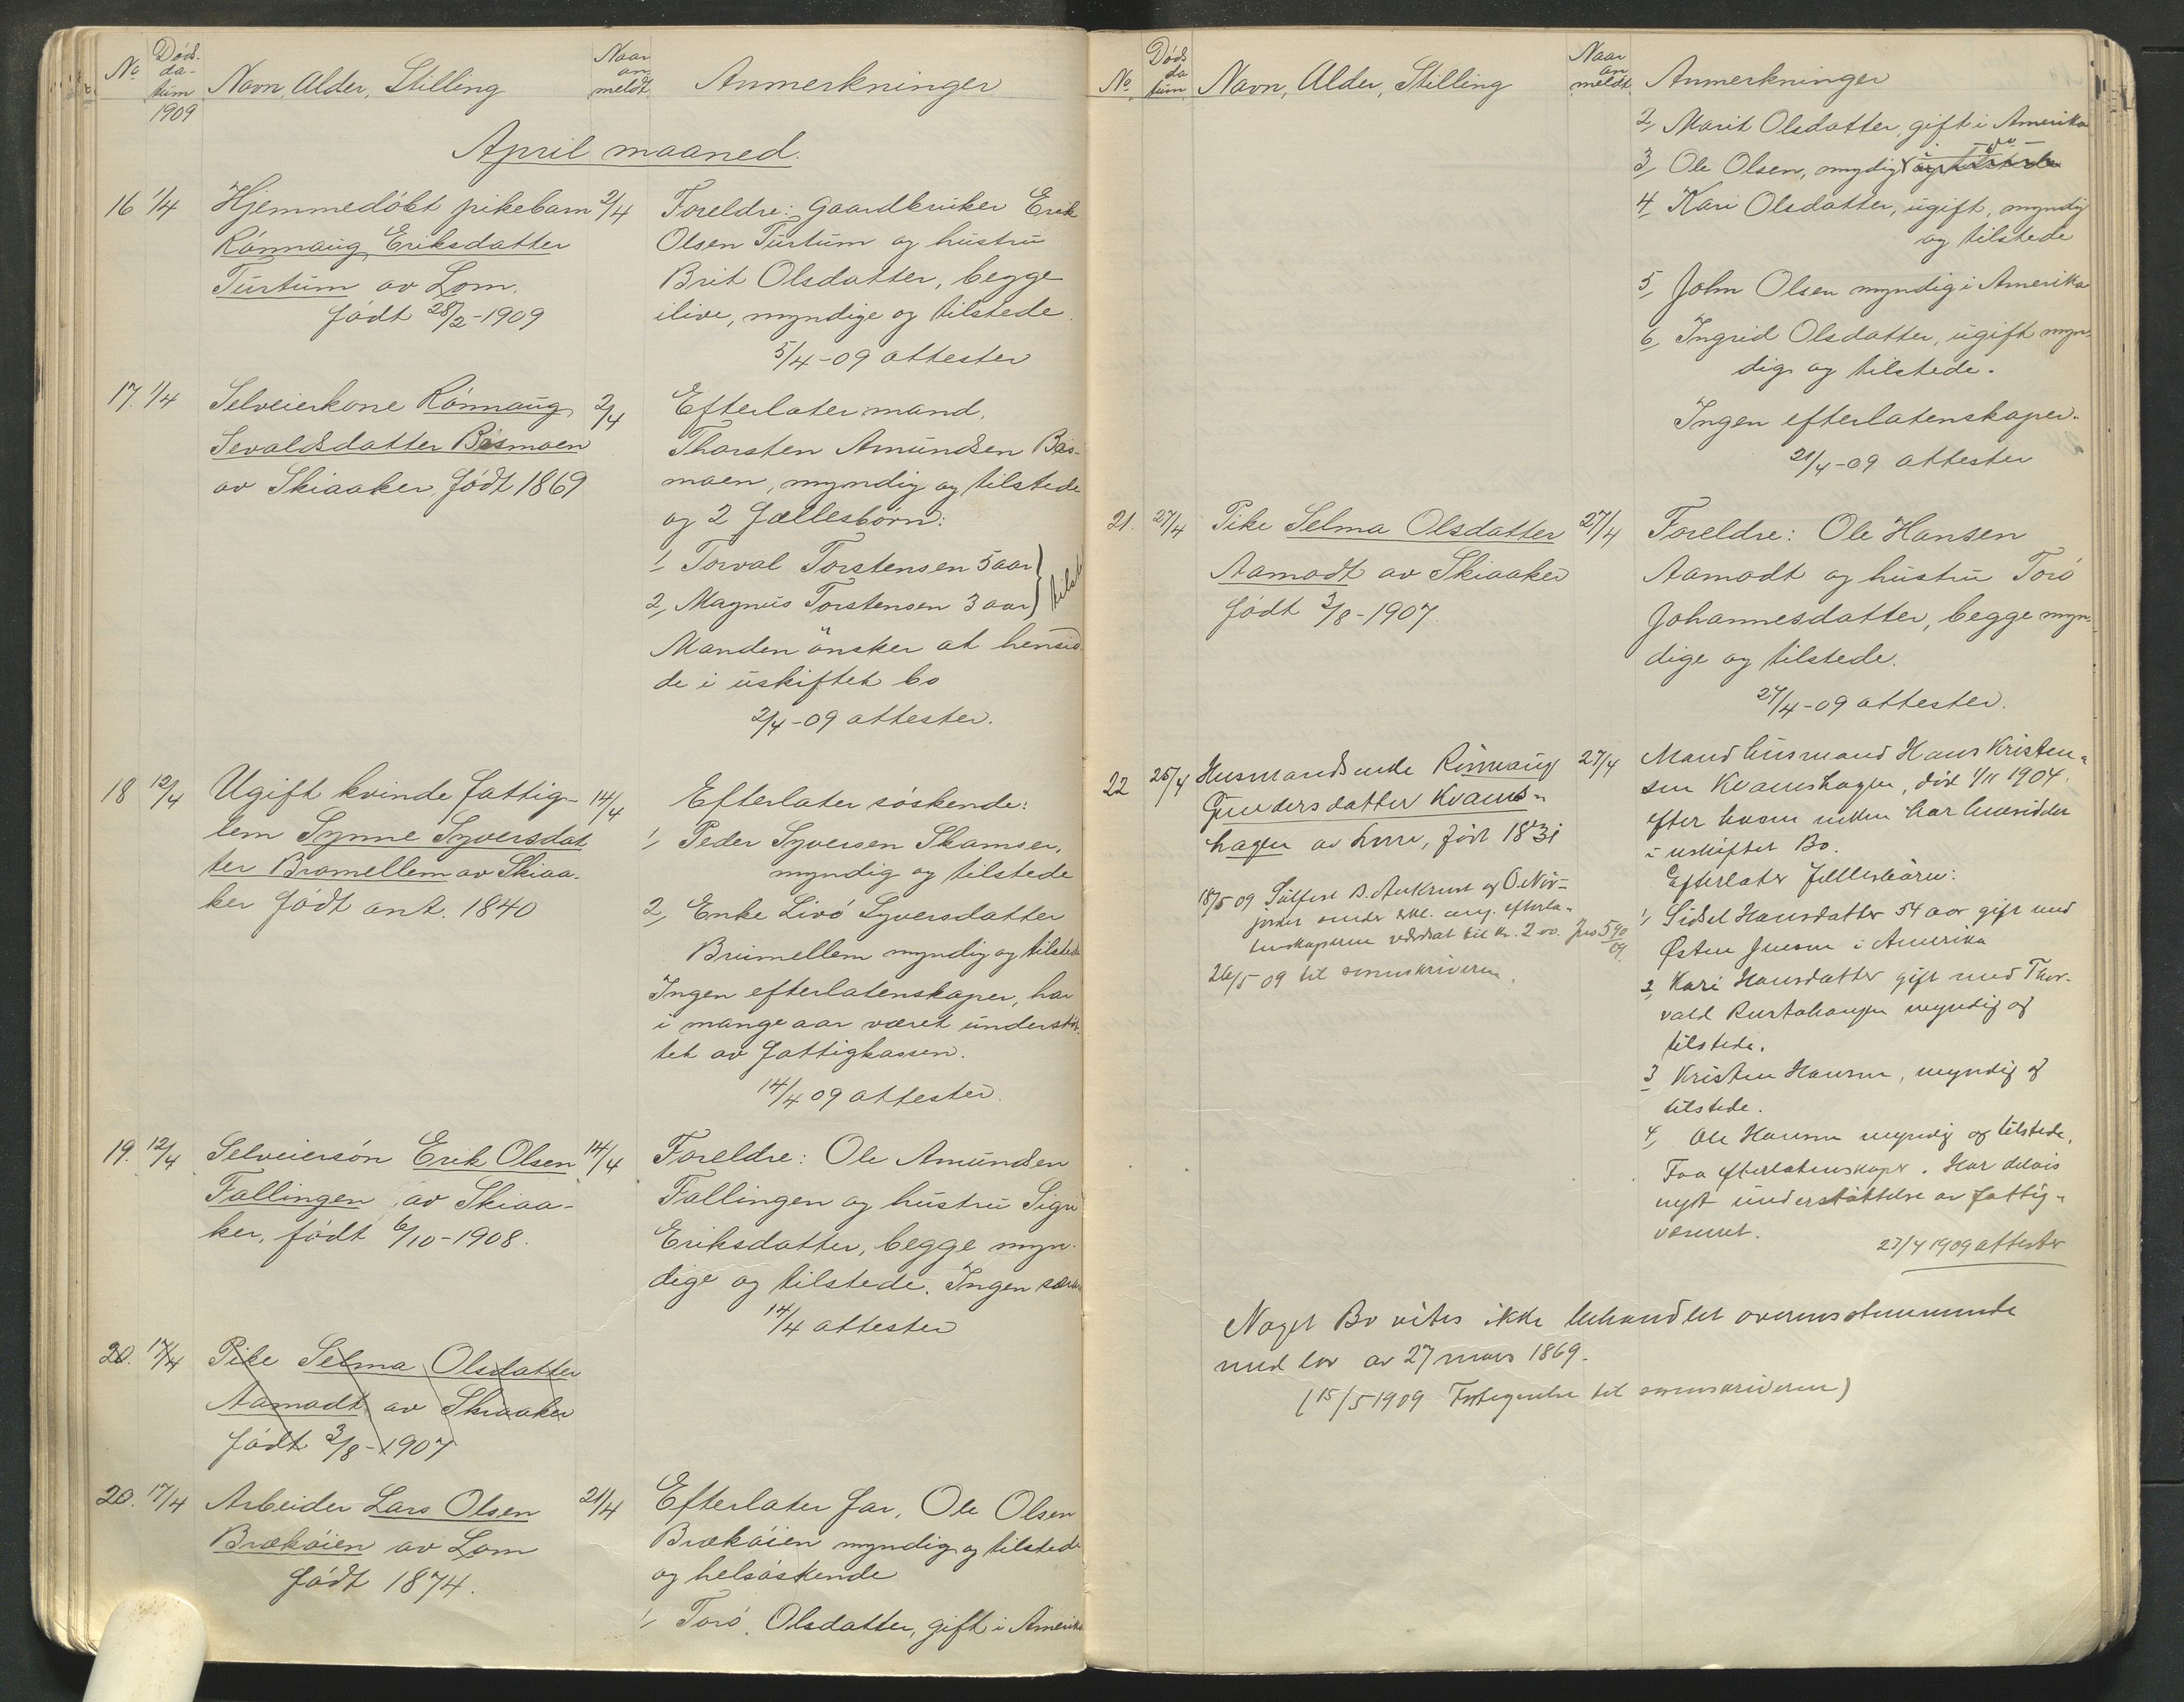 No Døds- da- tum 1909 Navn, Alder, Stilling Naar an- meldt. Anmerkninger
April maaned.
16 1/4 Hjemmedøbt pikebarn 2/4
Rønnaug Eriksdatter
Turtum av Lom.
født 28/2-1909
Foreldre: Gaardbruker Erik
Olsen Turtum og hustru
Brit Olsdatter, begge
ilive, myndige og tilstede.
5/4-09 attester
17. 1/4 Selveierkone Rønnaug 2/4
Sevaldsdatter Bismoen
av Skiaaker, født 1869
Efterlater mand.
Thorsten Amundsen Bis-
moen, myndig og tilstede
og 2 fællesbørn:
1, Torval Torstensen 5 aar
2, Magnus Torstensen 3 aar } tilst
Manden ønsker at hensid-
de i uskiftet bo
2/4-09 attester.
18 12/4 Ugift kvinde fattig- 14/4
lem Synne Syversdat
ter Bromellem av Skiaa-
ker født ant. 1840
Efterlater søskende:
1, Peder Syversen Skamser,
myndig og tilstede
2, Enke Livø Syversdatter
Brimellem myndig og tilstede
Ingen efterlatenskaper, har
i mange aar været understøt-
tet av fattigkassen.
14/4 09 attester.
19. 12/4 Selveiersøn Erik Olsen 14/4
Fallingen av Skiaa-
ker, født 6/10-1908.
Foreldre: Ole Amundsen
Fallingen og hustru Sigri
Eriksdatter, begge myn-
dige og tilstede. Ingen
14/4 attester
20. 17/4 Pike Selma Olsdatter
Aamodt av Skiaaker
født 3/8-1907
20. 17/4 Arbeider Lars Olsen 21/4
Brækøien av Lom
født 1874.
Efterlater far, Ole Olsen
Brækøien myndig og tilstede
og helsøskende
1, Torø Olsdatter, gift i Amerika
No Døds da tum Navn, Alder, Stilling Naar an meldt. Anmerkninger
2, Marit Olsdatter, gift i Amerika
3, Ole Olsen, myndig i -do- og tilstede
4, Kari Olsdatter, ugift, myndig
og tilstede
5, John Olsen myndig i Amerika
6, Ingrid Olsdatter, ugift myn-
dig og tilstede.
Ingen efterlatenskaper.
21/4-09 attester
21. 27/4 Pike Selma Olsdatter 27/4
Aamodt av Skiaaker
født 3/8-1907.
Foreldre: Ole Hansen
Aamodt og hustru Torø
Johannesdatter, begge myn-
dige og tilstede.
27/4-09 attester.
22 25/4 Husmandsenke Rønnaug 27/4
Gudersdatter Kvams-
hagen av Lom, født 1831
18/5 09
efterla-
tenskaperne værdsat til Kr. 2.00. Jno 590/09
26/5 09 til sorenskriveren.
Mand husmand Hans Kristen-
sen Kvamshagen, død 1/11 1904.
efter hvem enken har hensiddet
i uskiftet Bo.
Efterlater fællesbørn:
1, Sidsel Hansdatter 54 aar gift med
Østen Jensen i Amerika
2, Kari Hansdatter gift med Thor-
vald Rustahaugen myndig og
tilstede.
3 Kristen Hansen, myndig og
tilstede.
4, Ole Hansen myndig og tilstede.
Faa efterlatenskaper. Har delvis
nydt understøttelse av fattig-
væsenet.
27/4 1909 attester
Noget Bo vites ikke behandlet overensstemmende
med lov av 27 mars 1869.
(15/5 1909 Fortegnelse til sorenskriveren)